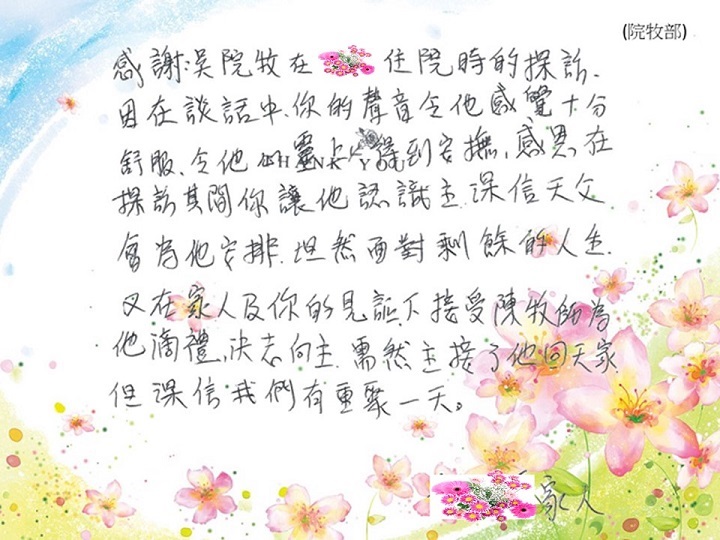 (院牧部)
感謝吳院牧在 住院時的探訪.
因在談話中.你的聲音令他感覺十分
舒服.令他心靈上 得到安撫,感恩在
探訪其間你讓他認識主.深信天父
會為他安排.坦然面對剩餘的人生.
又在家人及你的見証下接受陳牧師為
他滴禮,決志向主.雖然主接了他回天家
但深信我們有重聚一天。
家人